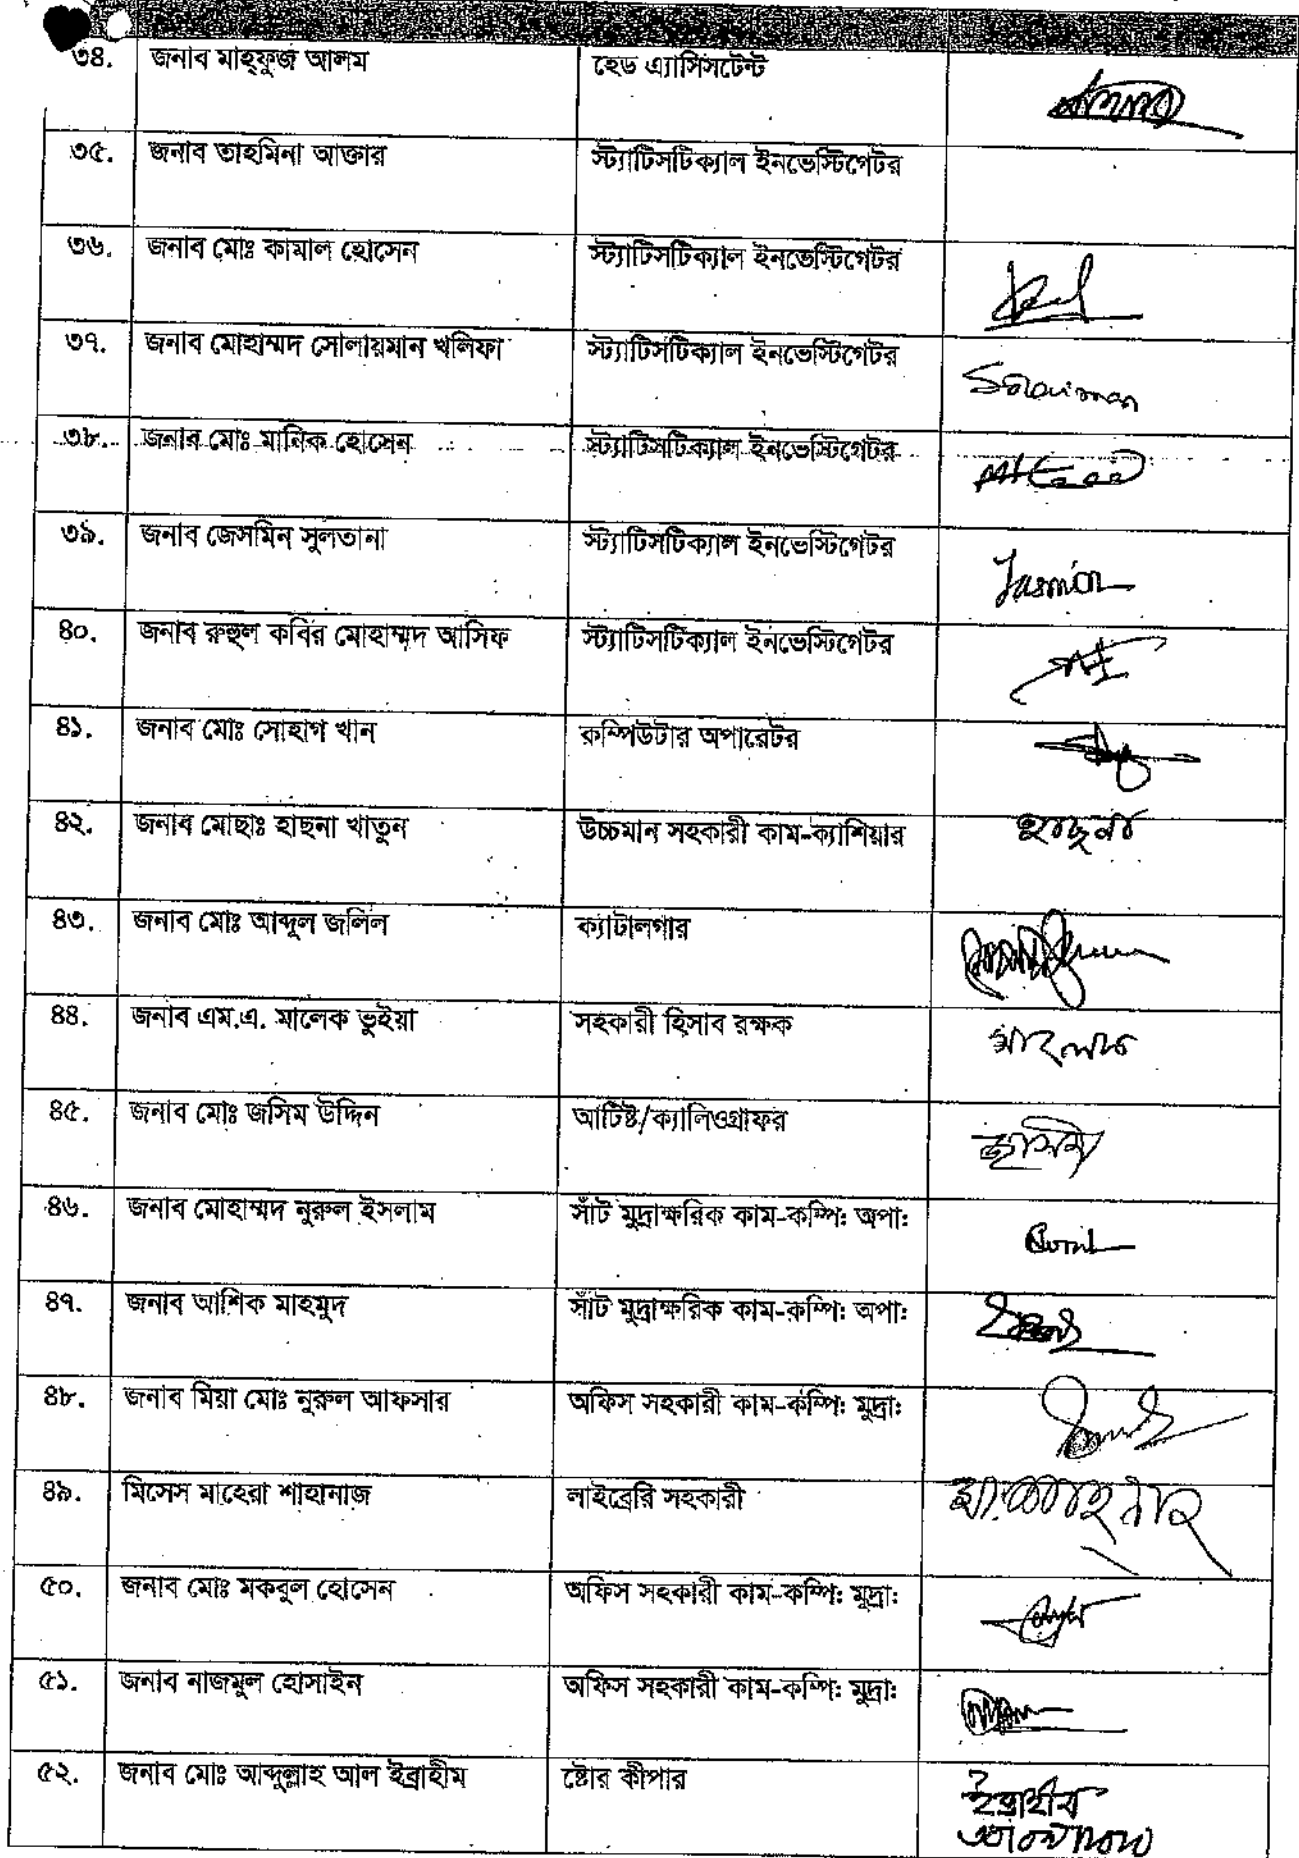 ৩৪. জনাব মাহ্ফুজ আলম হেড এ্যাসিসটেন্ট
৩৫. জনাব তাহমিনা আক্তার স্ট্যাটিসটিক্যাল ইনভেস্টিগেটর
৩৬. জনাব মোঃ কামাল হোসেন স্ট্যাটিসটিক্যাল ইনভেস্টিগেটর
৩৭. জনাব মোহাম্মদ সোলায়মান খলিফা স্ট্যাটিসটিক্যাল ইনভেস্টিগেটর
৩৮. জনাব মোঃ মানিক হোসেন স্ট্যাটিসটিক্যাল ইনভেস্টিগেটর
৩৯. জনাব জেসমিন সুলতানা স্ট্যাটিসটিক্যাল ইনভেস্টিগেটর Jasmin
৪০. জনাব রুহুল কবির মোহাম্মদ আসিফ স্ট্যাটিসটিক্যাল ইনভেস্টিগেটর
৪১. জনাব মোঃ সোহাগ খান কম্পিউটার অপারেটর
৪২. জনাব মোছাঃ হাছনা খাতুন উচ্চমান সহকারী কাম-ক্যাশিয়ার হাছনা
৪৩. জনাব মোঃ আব্দুল জলিল ক্যাটালগার
৪৪. জনাব এম.এ. মালেক ভুইয়া সহকারী হিসাব রক্ষক
৪৫. জনাব মোঃ জসিম উদ্দিন আর্টিষ্ট/ক্যালিওগ্রাফর
৪৬. জনাব মোহাম্মদ নুরুল ইসলাম সাঁট মুদ্রাক্ষরিক কাম-কম্পি: অপা:
৪৭. জনাব আশিক মাহমুদ সাঁট মুদ্রাক্ষরিক কাম-কম্পি: অপা:
৪৮. জনাব মিয়া মোঃ নুরুল আফসার অফিস সহকারী কাম-কম্পি: মুদ্রা:
৪৯. মিসেস মাহেরা শাহানাজ লাইব্রেরি সহকারী
৫০. জনাব মোঃ মকবুল হোসেন অফিস সহকারী কাম-কম্পি: মুদ্রা:
৫১. জনাব নাজমুল হোসাইন অফিস সহকারী কাম-কম্পি: মুদ্রা:
৫২. জনাব মোঃ আব্দুল্লাহ আল ইব্রাহীম ষ্টোর কীপার ইব্রাহীম